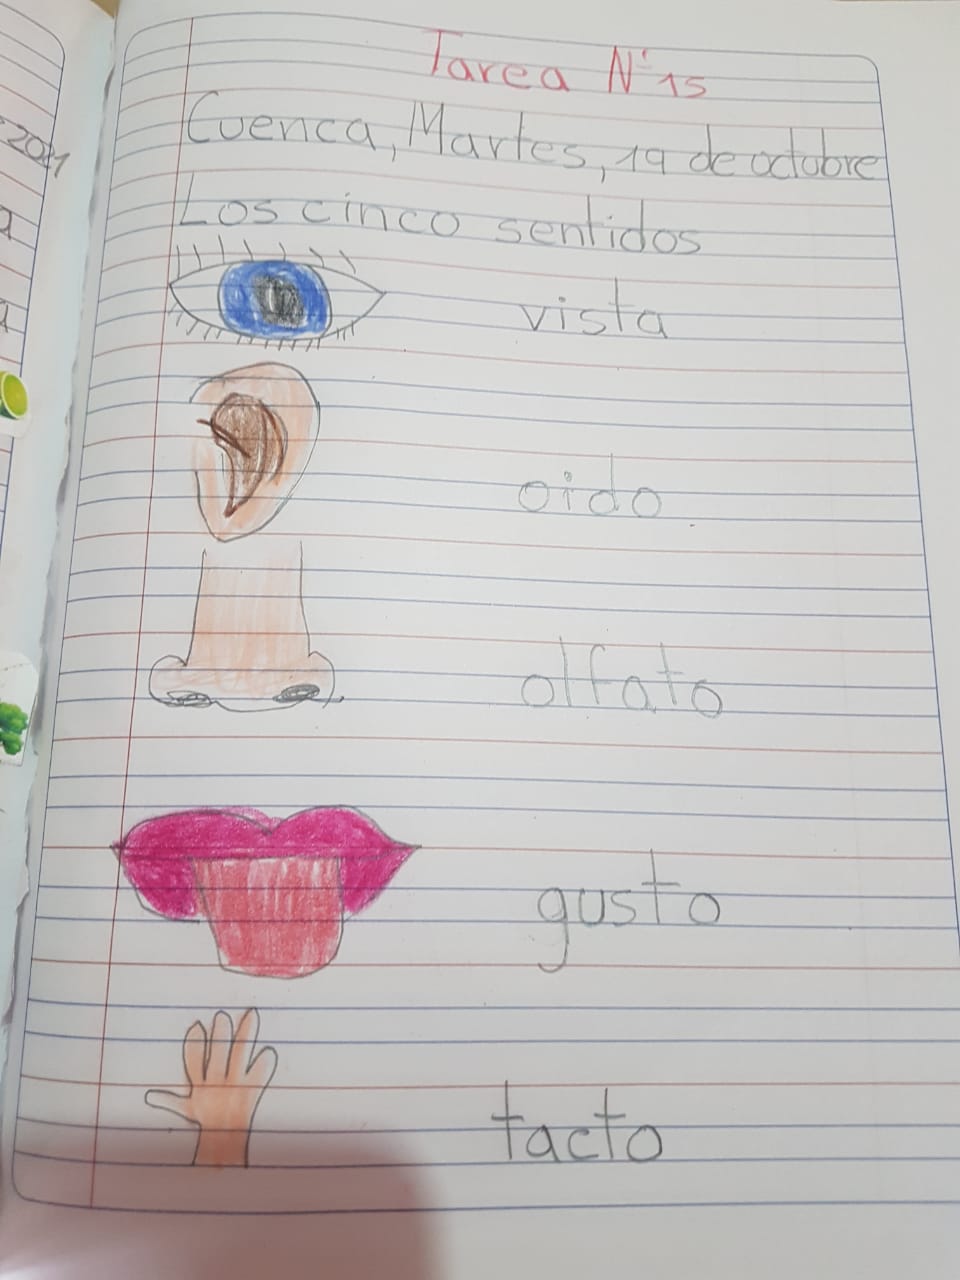 Tarea N° 15
Cuenca, Martes, 19 de octubre
Los cinco sentidos
vista
oido
olfato
gusto
tacto
2021